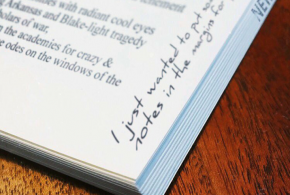 with radiant cool eyes
Arkansas and Blake-light tragedy
scholars of war.
the academies for crazy &
odes on the windows of the
I just wanted to put some
notes in the margin for
NEW